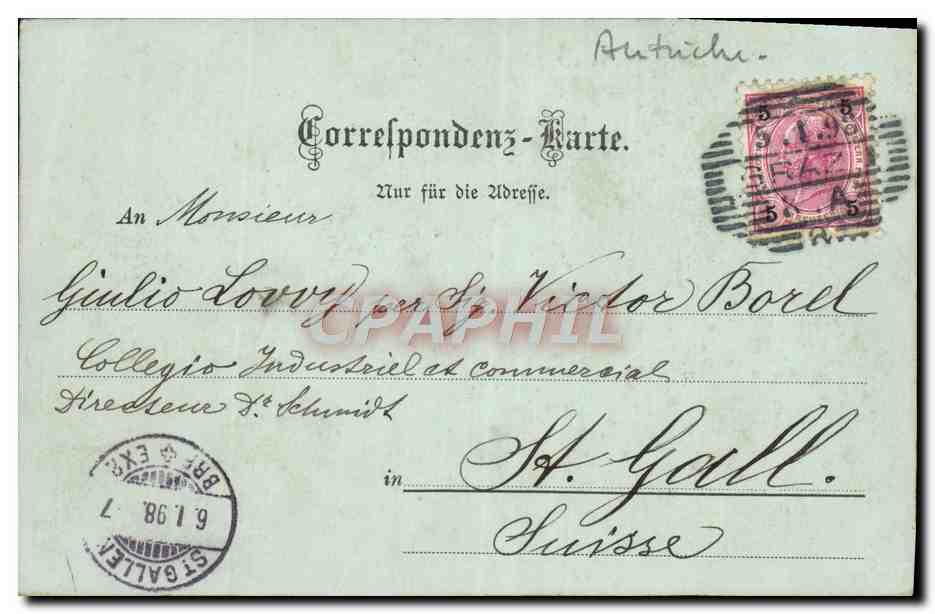 Autriche.
Correspondenz-Karte.
Nur für die Adresse.
An Monsieur
Giulio Lovvy per Sig. Victor Borel
CPAPHIL
Collegio Industriel et commercial
Directeur Dr Schmidt
in St. Gall.
Suisse
5 5
5 5
BRF EXP
6.I.98.-7
ST GALLEN